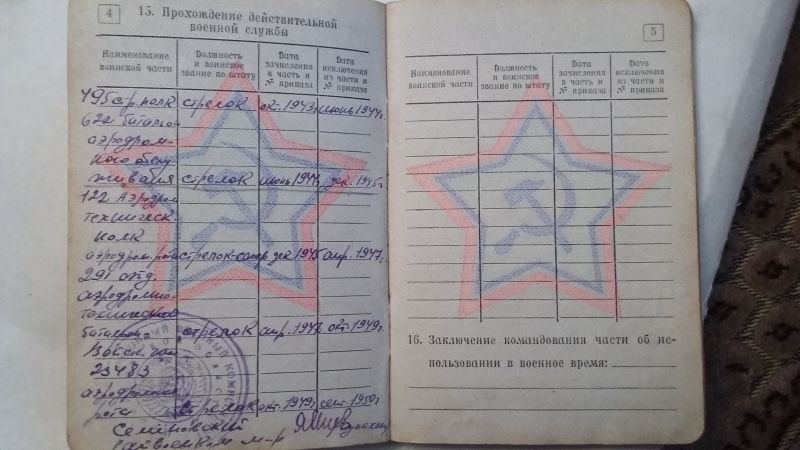 4
15. Прохождение действительной
военной службы
Наименование воинской части
Должность и воинское звание по штату
Дата зачисления в часть и № приказа
Дата исключения из части и № приказа
495 стр. полк стрелок окт. 1943г. июнь 1944г.
622 батальон
аэродром-
ного обслу-
живания стрелок июнь 1944г. дек. 1945г.
122 Аэродром
техническ.
полк
аэродром. рота стрелок-сапер дек. 1945 апр. 1947г.
291 отд.
аэродромно-
технический
батальон стрелок апр. 1947 окт. 1949г.
Войск. часть
23483
аэродромная
рота стрелок окт. 1949г. сент. 1950г.
Семёновский
райвоенком м-р
5
Наименование воинской части
Должность и воинское звание по штату
Дата зачисления в часть и № приказа
Дата исключения из части и № приказа
16. Заключение командования части об ис-
пользовании в военное время: